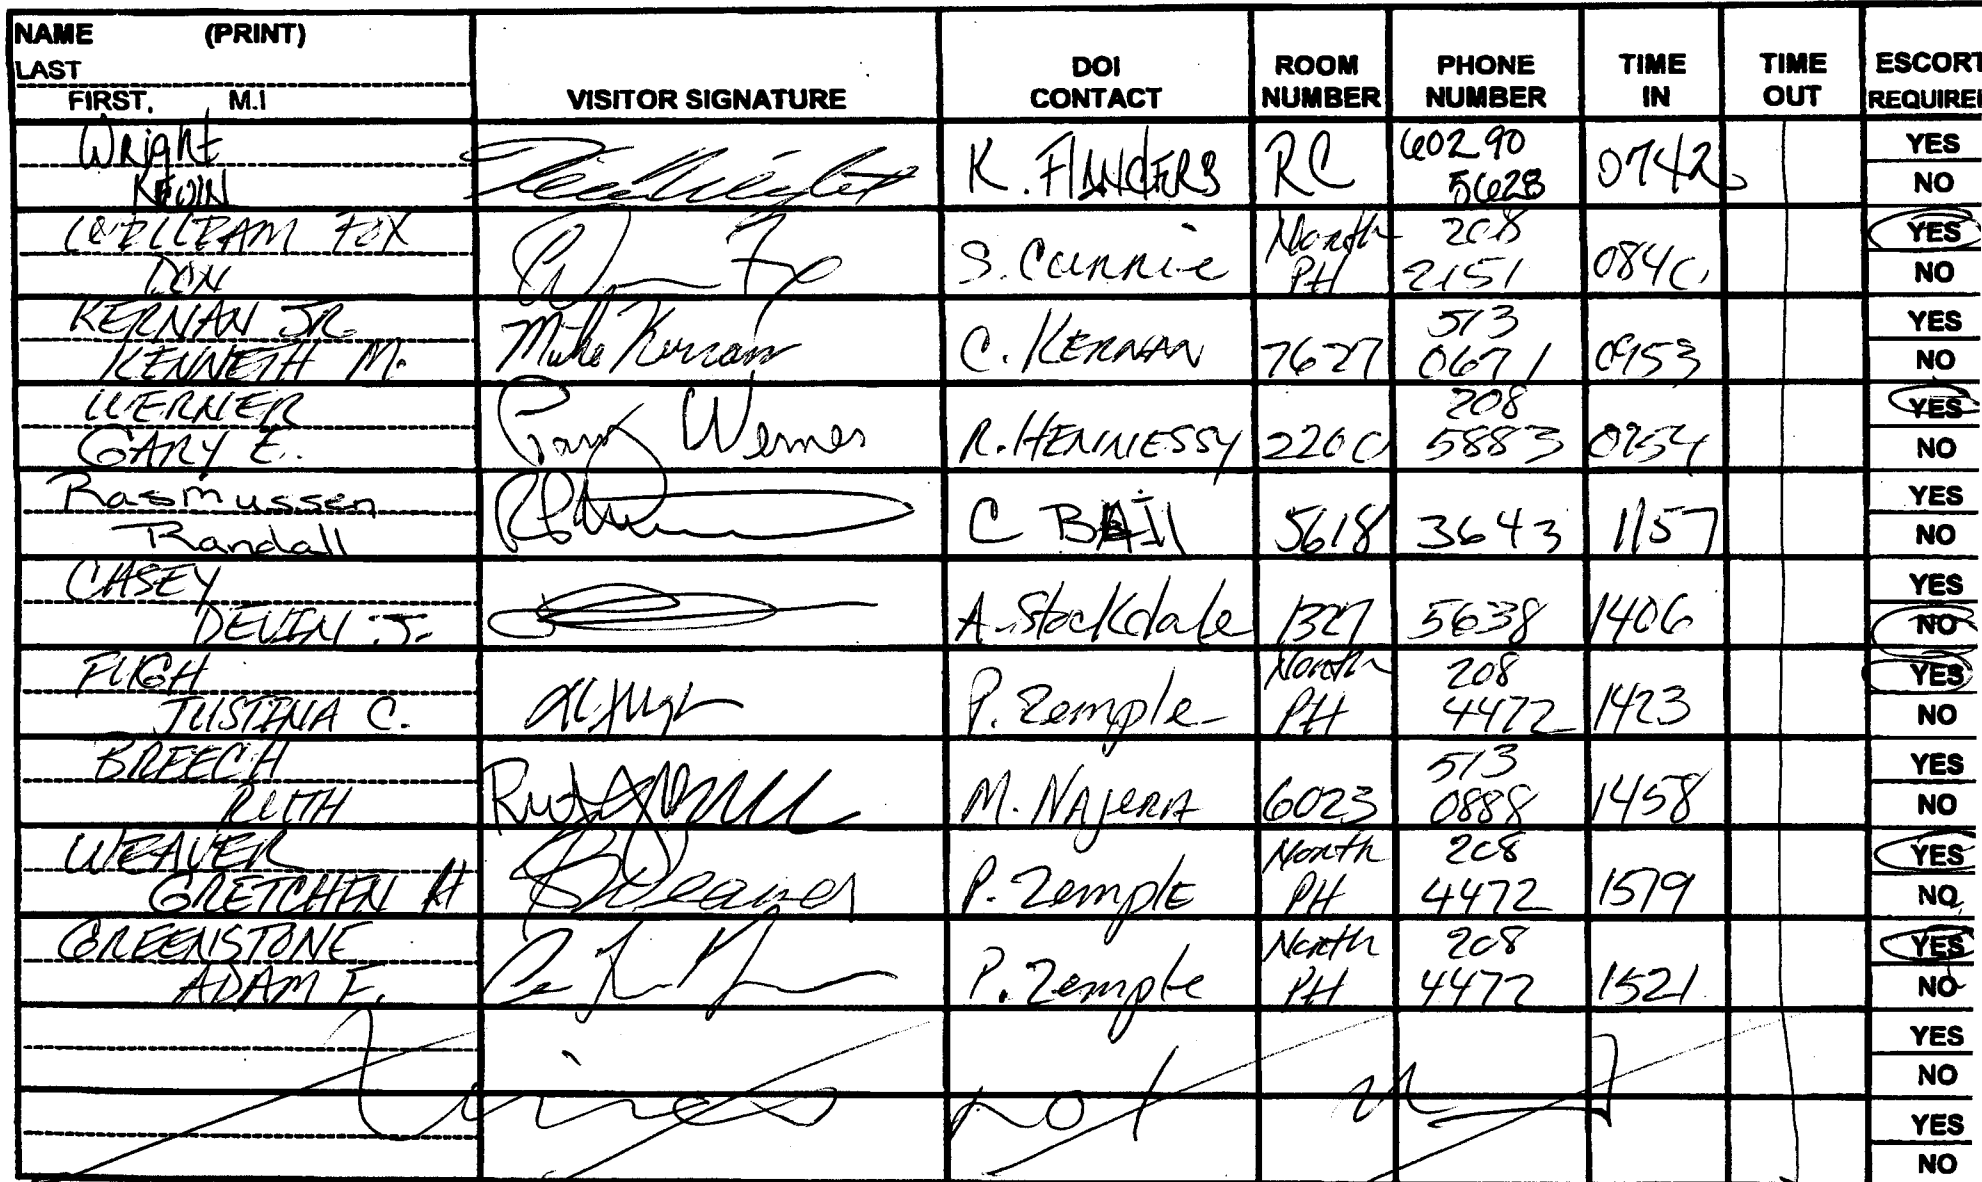 NAME (PRINT)
LAST
FIRST, M.I
VISITOR SIGNATURE
DOI CONTACT
ROOM NUMBER
PHONE NUMBER
TIME IN
TIME OUT
ESCORT REQUIRED
Wright
KEVIN
K. FLANDERS RC 60290 5628 0742 YES NO
WILLIAM FOX
DON
S. Currie North PH 208 2151 0840 YES NO
KERNAN JR.
KENNETH M.
Mike Kernan C. KERNAN 7627 513 0671 0953 YES NO
WERNER
GARY E.
Gary Werner R. HENNESSY 2200 208 5883 0954 YES NO
Rasmussen
Randall
C BAIL 5618 3643 1157 YES NO
CASEY
DEVIN J.
A. Stockdale 1327 5638 1406 YES NO
FUGH
JUSTINA C.
P. Zemple North PH 208 4472 1423 YES NO
BREECH
RUTH
Ruth M. NAJERA 6023 513 0888 1458 YES NO
WEAVER
GRETCHEN H
Weaver P. Zemple North PH 208 4472 1519 YES NO
GREENSTONE
ADAM F.
P. Zemple North PH 208 4472 1521 YES NO
YES
NO
Lines not
YES
NO